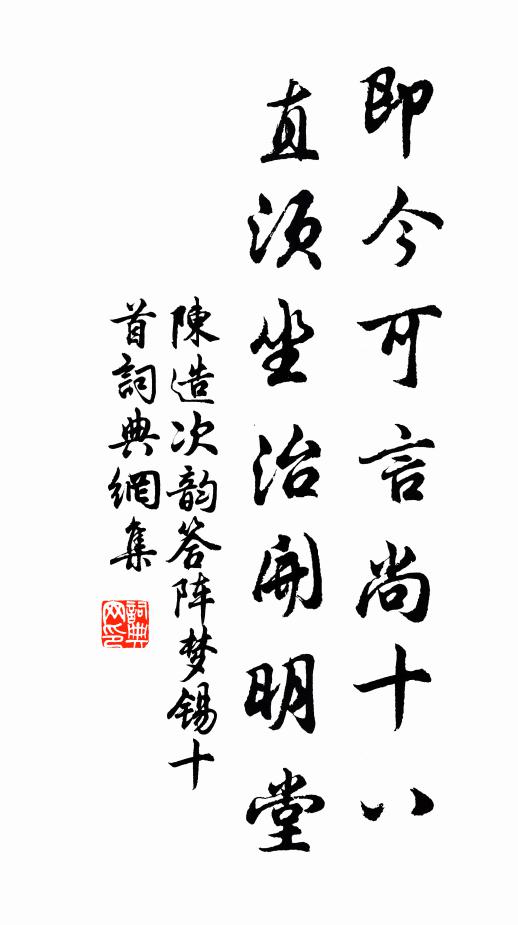 即今可言尚十八
直须坐治開明堂
陳造次韵答阵梦锡十
首詞典網集
詞典网印